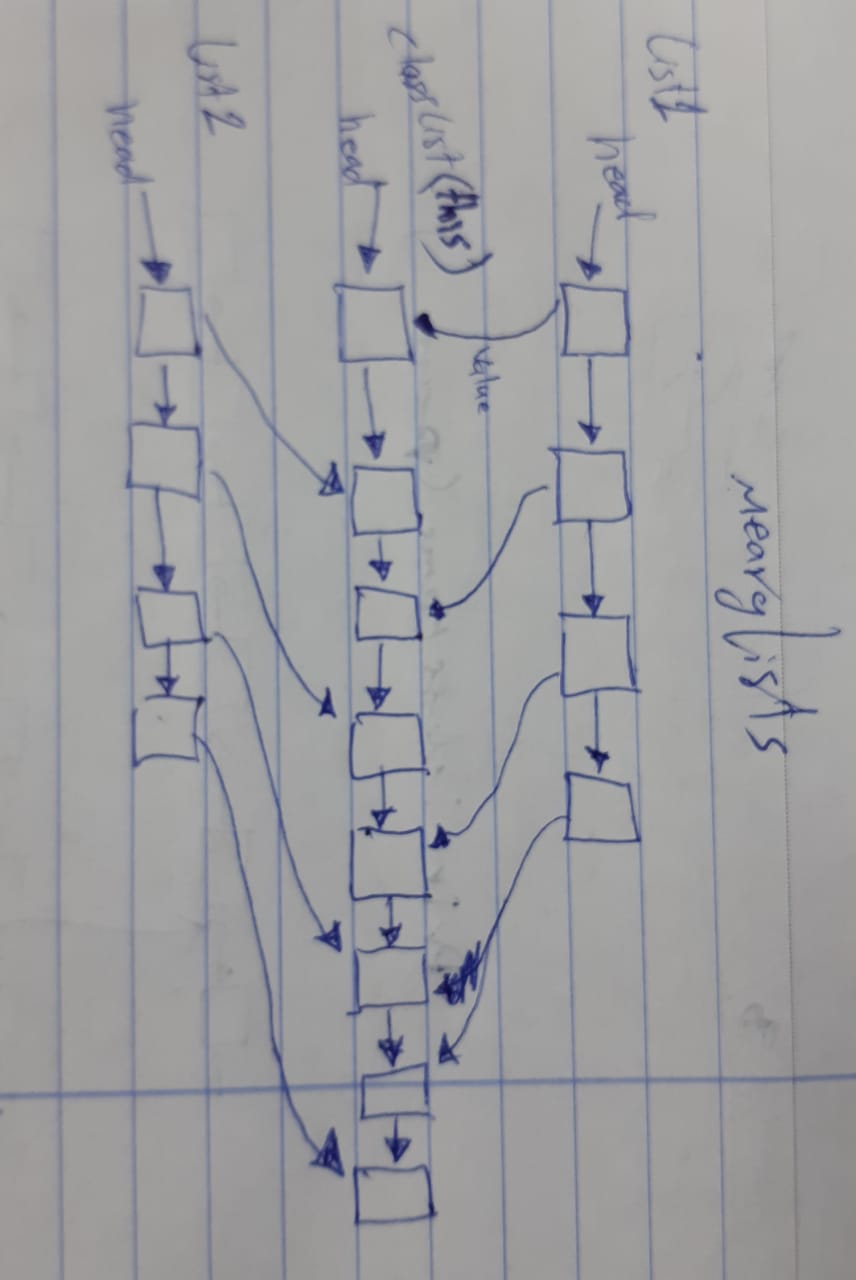 Mearg lists
List1
head
value
class list (this)
head
List2
head